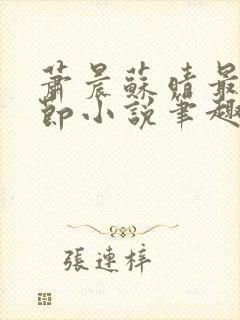 蕭晨蘇晴最
節小說筆趣
張連梓